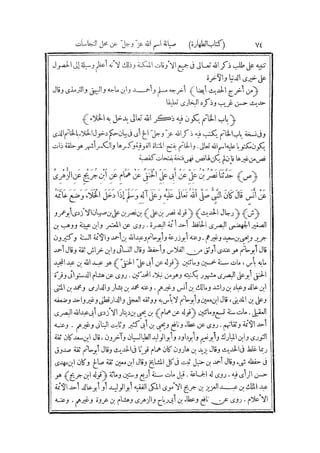 ٧٤ (كتاب الطهارة) صيانة اسم الله عز وجل عن محل النجاسات
تنبيه على طلب ذكر الله تعالى فى جميع الأوقات الممكنة وذلك لأنه أعظم وسيلة إلى الحصول
على خيرى الدنيا والآخرة
(من أخرج الحديث أيضا) أخرجه مسلم وأحمد وابن ماجه والبيهقى والترمذى وقال
حديث حسن غريب وذكره البخارى تعليقا
(باب الخاتم يكون فيه ذكر الله تعالى يدخل به الخلاء)
وفى نسخة باب الخاتم يكتب فيه ذكر الله عز وجل الخ أى فى بيان حكم دخول الخلاء بالخاتم الذى
يكون مكتوبا عليه اسم الله تعالى. والخاتم بفتح المثناة الفوقية وكسرها والكسر أشهر هو حلقة ذات
فص من غيرها فإن لم يكن لها فص فهى فتخة بفتحات كقصبة
(ص) حَدَّثَنَا نَصْرُ بْنُ عَلِيٍّ عَنْ أَبِي عَلِيٍّ الْحَنَفِيِّ عَنْ هَمَّامٍ عَنِ ابْنِ جُرَيْجٍ عَنِ الزُّهْرِيِّ
عَنْ أَنَسٍ قَالَ كَانَ النَّبِيُّ صَلَّى اللهُ تَعَالَى عَلَيْهِ وَعَلَى آلِهِ وَسَلَّمَ إِذَا دَخَلَ الْخَلَاءَ وَضَعَ خَاتَمَهُ
(ش) (رجال الحديث) (قوله نصر بن على) بن نصر بن على بن صهبان الأزدى أبو عمرو
الصغير الجهضمى البصرى الحافظ أحد أئمة البصرة. روى عن المعتمر وابن عيينة ووهب بن
جرير ويحيى بن سعيد وغيرهم. وعنه أبو زرعة وأبو حاتم وعبد الله بن أحمد والأئمة الستة وكثيرون
قال أبو حاتم هو عندى أوثق من الفلاس وأحفظ وقال النسائى وابن خراش ثقة وقال أحمد
مابه بأس. مات سنة خمسين ومائتين (قوله عن أبى على الحنفى) هو عبيد الله بن عبد المجيد
الحنفى أبو على البصرى مشهور بكنيته وهو من نبلاء المحدثين. روى عن هشام الدستوائى وقرة
ابن خالد وعباد بن راشد ومالك بن أنس وغيرهم. وعنه محمد بن بشار والدارمى ومحمد بن المثنى
وعلى بن المدينى، قال ابن معين وأبو حاتم لابأس به ووثقه العجلى والدارقطنى وغير واحد وضعفه
العقيلى. مات سنة تسع ومائتين (قوله عن همام) بن يحيى بن دينار الأزدى أبى عبد الله البصرى
أحد الأئمة وثقاتهم. روى عن عطاء ونافع ويحيى بن أبى كثير وثابت البنانى وغيرهم. وعنه
الثورى وابن المبارك وأبو نعيم وأبو داود وأبو الوليد الطيالسيان وآخرون، قال ابن سعد كان ثقة
ربما غلط فى الحديث وقال يزيد بن هارون كان همام قويا فى الحديث وقال أبو حاتم ثقة صدوق
فى حفظه شىء وقال أحمد بن حنبل ثبت فى كل المشايخ وقال ابن معين ثقة صالح وكان ابن مهدى
حسن الرأى فيه. روى له الجماعة. قيل مات سنة أربع وستين ومائة (قوله ابن جريج) هو
عبد الملك بن عبد العزيز بن جريج الأموى المكى الفقيه أبو الوليد أو أبو خالد أحد الأئمة
الأعلام. روى عن نافع وعطاء بن أبى رباح والزهرى وهشام بن عروة وغيرهم. وعنه